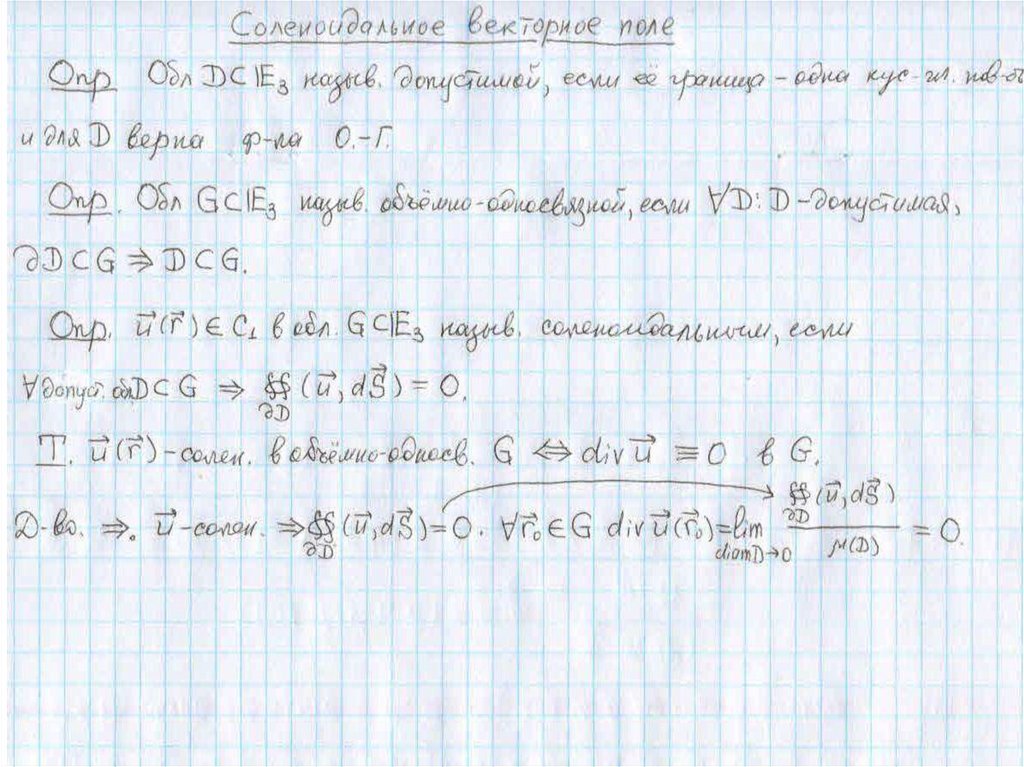 Соленоидальное векторное поле
Опр. Обл D⊂𝔼₃ назыв. допустимой, если её граница – одна кус-гл. пов-ть
и для D верна ф-ла О.-Г.
Опр. Обл G⊂𝔼₃ назыв. объёмно-односвязной, если ∀D: D-допустимая,
∂D⊂G ⇒ D⊂G.
Опр. u⃗(r⃗)∈C₁ в обл. G⊂𝔼₃ назыв. соленоидальным, если
∀допуст. обл D⊂G ⇒ ∯_∂D (u⃗, dS⃗) = 0.
Т. u⃗(r⃗)-солен. в объёмно-односв. G ⇔ div u⃗ ≡ 0 в G.
Д-во. ⇒. u⃗-солен. ⇒ ∯_∂D (u⃗, dS⃗) = 0. ∀r⃗₀∈G div u⃗(r⃗₀) = lim_{diam D→0} ∯_∂D (u⃗, dS⃗) / μ(D) = 0.